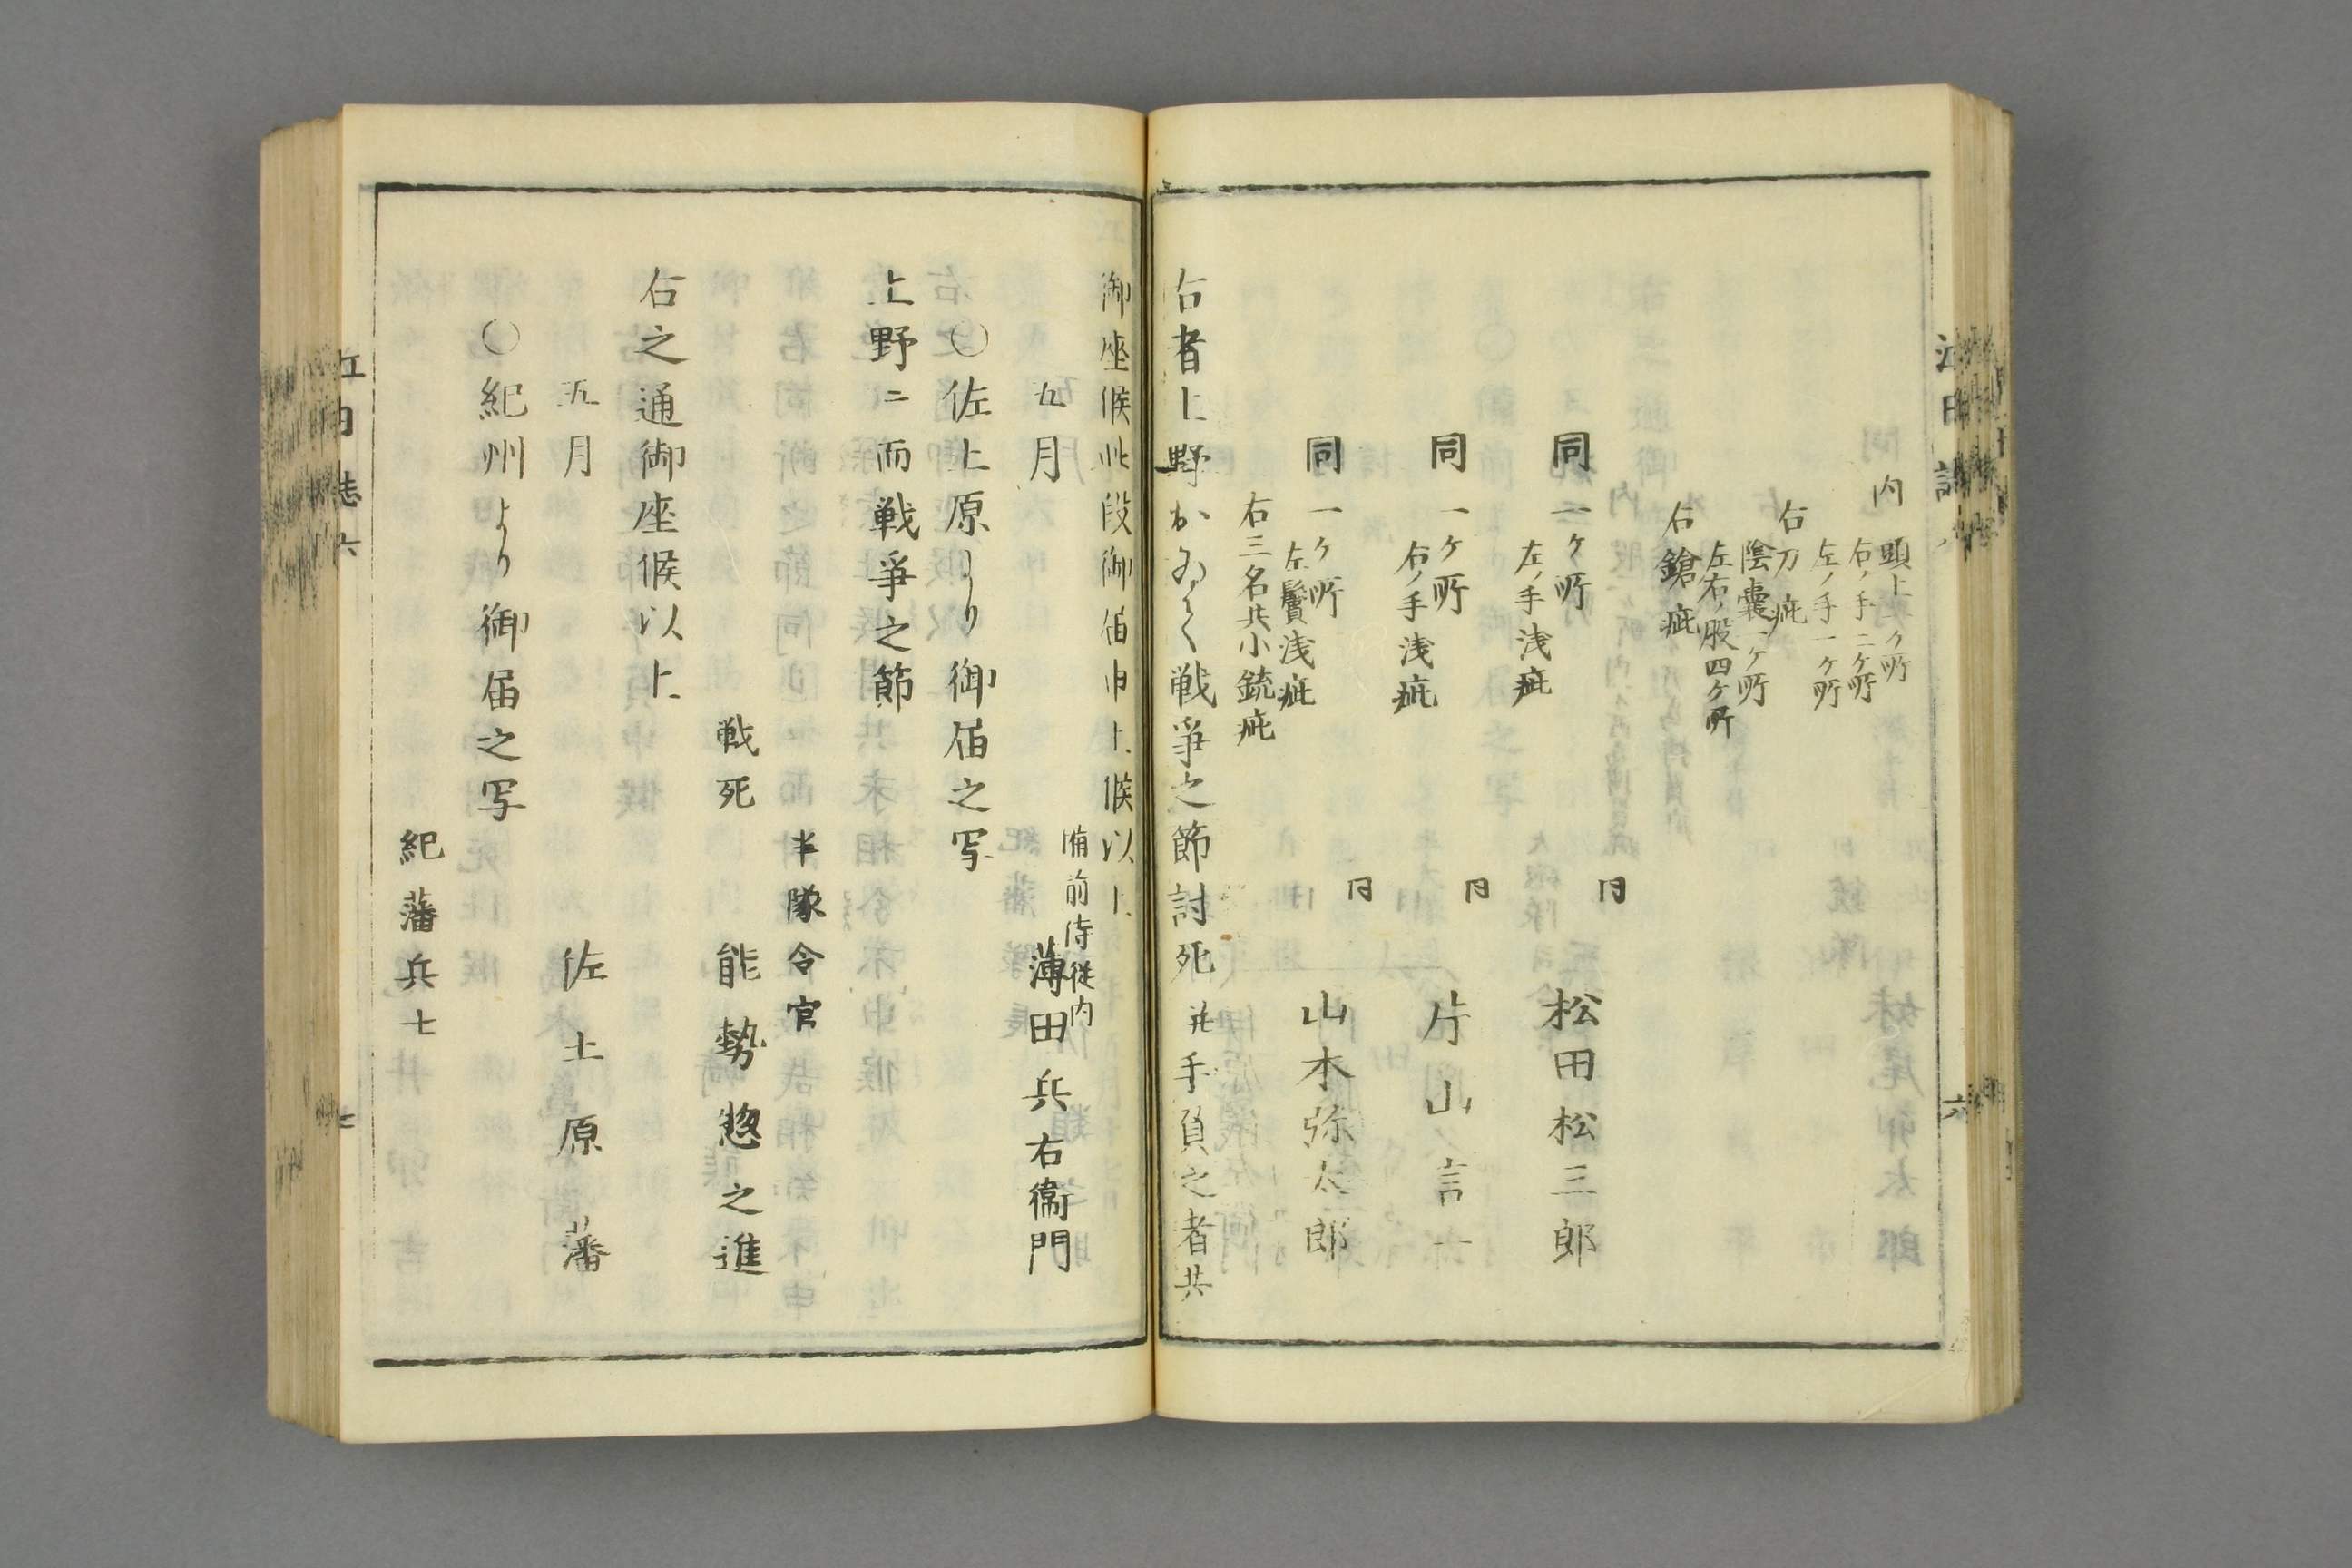 内 頭上一ケ所
右ノ手二ケ所
左ノ手一ケ所
右刀疵
陰嚢一ケ所
左右ノ股四ケ所
右鎗疵
同 二ケ所
左ノ手浅疵
同
松田松三郎
同 一ケ所
右ノ手浅疵
同
片山
同 一ケ所
左鬢浅疵
同
山本弥太郎
右三名共小銃疵
右者上野おゐて戦争之節討死并手負之者共
御座候此段御届申上候以上
備前侍従内
五月
薄田兵右衛門
〇佐土原より御届之写
上野ニ而戦争之節
半隊令官
戦死
能勢惣之進
右之通御座候以上
五月
佐土原藩
〇紀州より御届之写
紀藩兵士
江日誌六
七
六